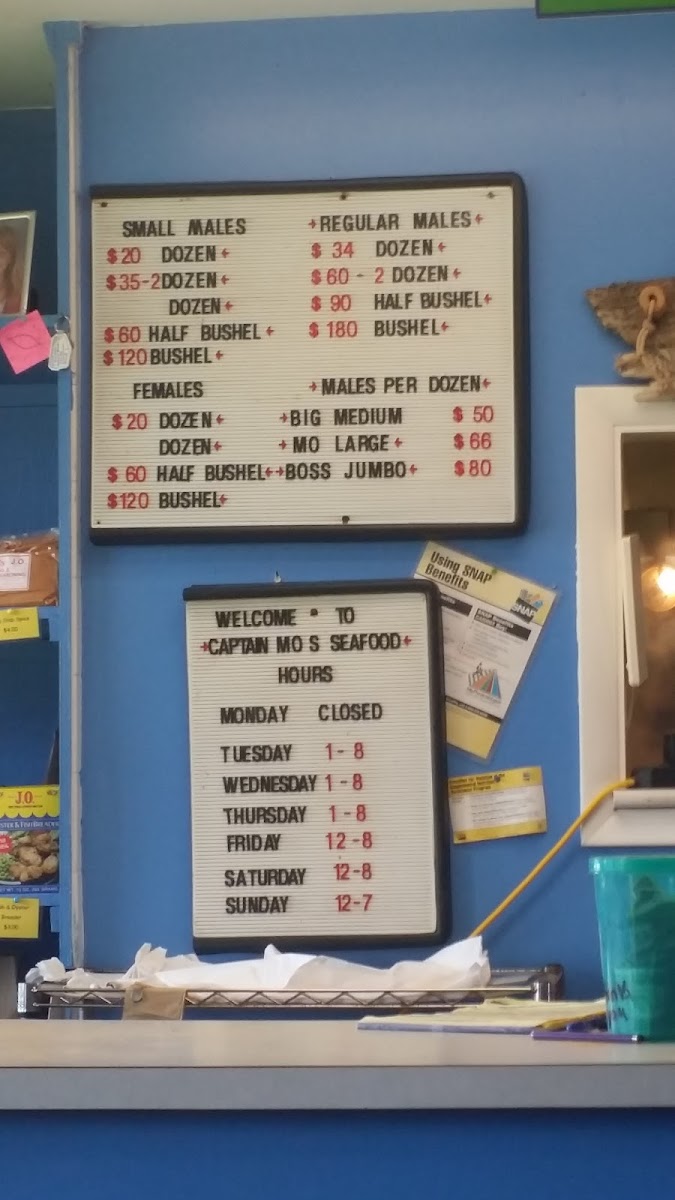 SMALL MALES
$20 DOZEN+
$35-2DOZEN+
DOZEN+
$60 HALF BUSHEL+
$120BUSHEL+
+REGULAR MALES+
$ 34 DOZEN+
$60 - 2 DOZEN+
$ 90 HALF BUSHEL+
$ 180 BUSHEL+
FEMALES
$20 DOZEN+
DOZEN+
$ 60 HALF BUSHEL+
$120 BUSHEL+
+MALES PER DOZEN+
+BIG MEDIUM $ 50
+MO LARGE+ $66
+BOSS JUMBO+ $80
WELCOME TO
+CAPTAIN MO S SEAFOOD+
HOURS
MONDAY CLOSED
TUESDAY 1-8
WEDNESDAY 1-8
THURSDAY 1-8
FRIDAY 12-8
SATURDAY 12-8
SUNDAY 12-7
Using SNAP
Benefits
SNAP
J.O.